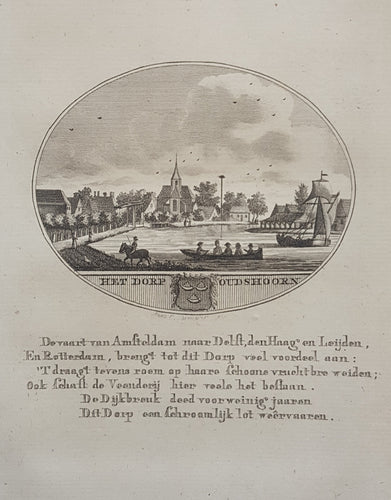 HET DORP OUDSHOORN
De vaart van Amsteldam naar Delft, den Haag en Leijden,
En Rotterdam, brengt tot dit Dorp veel voordeel aan:
'T draagt tevens room op haare schoone vruchtbre weiden;
Ook schaft de Veenderij hier veele het bestaan.
De Dijkbreuk deed voor weinige jaaren
Dit Dorp een schroomlijk lot weêrvaaren.